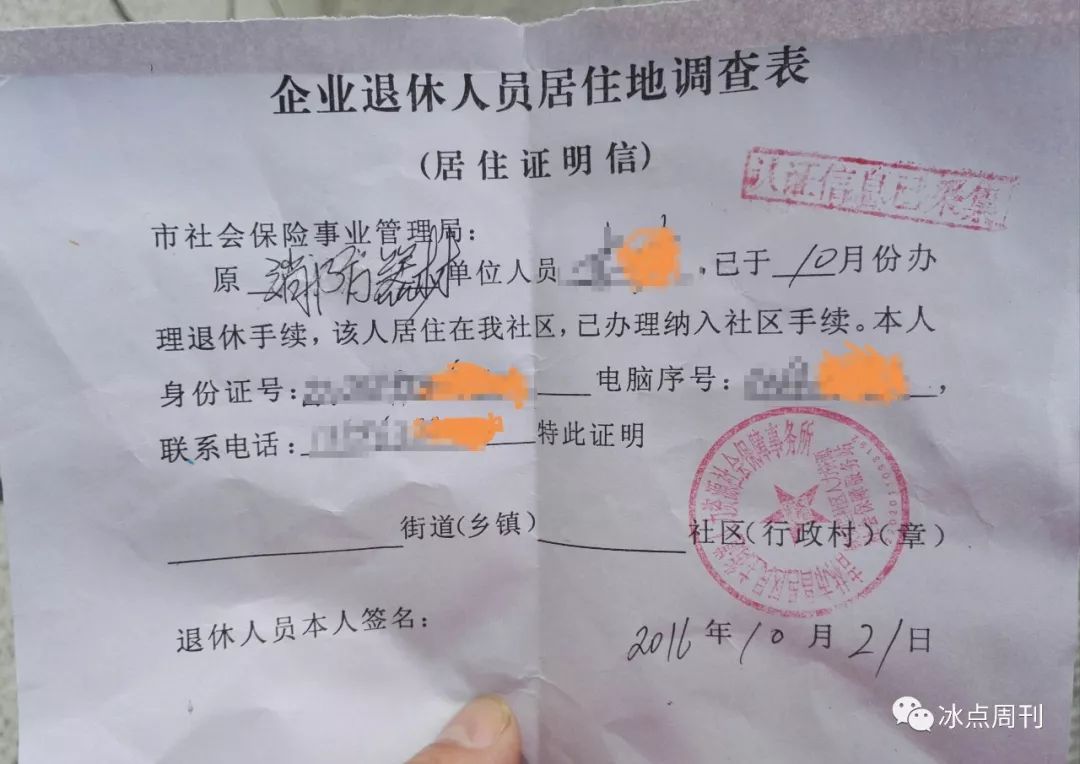 企业退休人员居住地调查表
(居住证明信)
认证信息已采集
市社会保险事业管理局:
原 消防器材 单位人员 ,已于 10 月份办
理退休手续,该人居住在我社区,已办理纳入社区手续。本人
身份证号: 电脑序号: ,
联系电话: 特此证明
街道(乡镇) 社区(行政村)(章)
退休人员本人签名:
2016年10月21日
冰点周刊